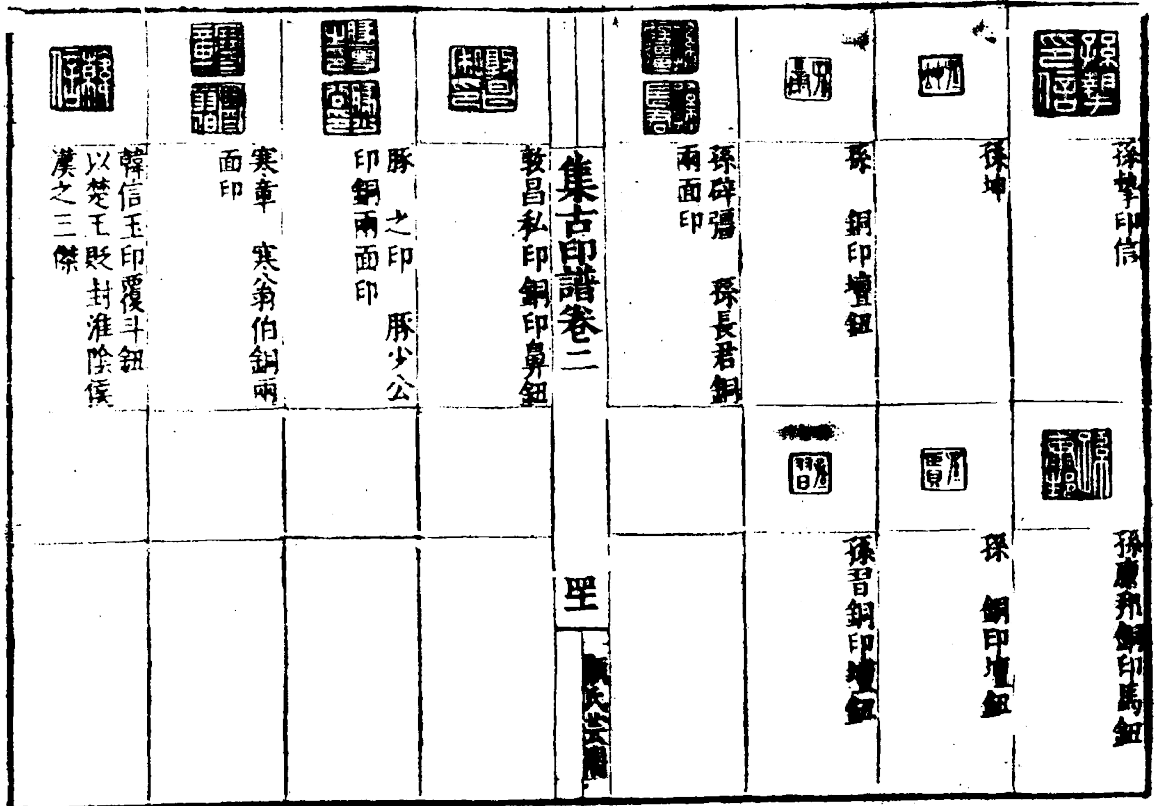 孫摯印信
孫 銅印馬鈕
孫坤
孫 銅印壇鈕
孫 銅印壇鈕
孫習銅印壇鈕
孫辟彊 孫長君銅
兩面印
集古印譜卷二
四十
顧氏芸閣
敦昌私印銅印鼻鈕
豚 之印 豚少公
印銅兩面印
寒章 寒翁伯銅兩
面印
韓信玉印覆斗鈕
以楚王貶封淮陰侯
漢之三傑